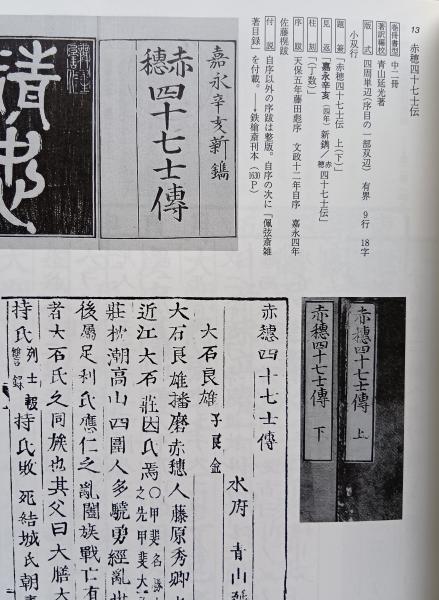 13 赤穂四十七士伝
巻冊書型 中二冊
著訳編校 青山延光著
版式 四周単辺(序目の一部双辺) 有界 9行 18字
小双行
題簽 「赤穂四十七士伝 上(下)」
見返 「嘉永辛亥(四年)新鐫/赤穂四十七士伝」
柱刻 「(丁数)」
序跋 天保五年藤田彪序 文政十二年自序 嘉永四年
佐藤楑跋
付説 自序以外の序跋は整版。自序の次に「佩弦斎雑
著目録」を付載。→鉄槍斎刊本(1630P)
嘉永辛亥新鐫
赤穗四十七士傳
赤穗四十七士傳 上
赤穗四十七士傳 下
赤穗四十七士傳
水府 青山延
大石良雄 子良金
大石良雄播磨赤穗人藤原秀卿
近江大石莊因氏焉〇甲斐大
之先甲斐大
莊枕潮高山四圍人多驍勇經亂世
後屬足利氏應仁之亂闔族戰亡有
者大石氏之同族也其父曰大膳大
持氏列士報讐錄持氏敗死結城氏朝